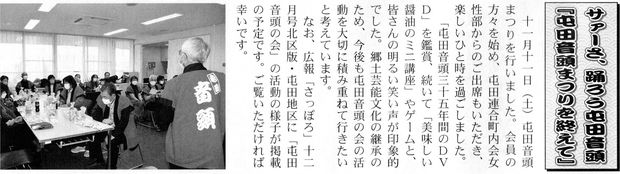 サァーさ、踊ろう屯田音頭
『屯田音頭まつりを終えて』
十一月十一日（土）屯田音頭
まつりを行いました。会員の
方々を始め、屯田連合町内会女
性部からのご出席もいただき、
楽しいひと時を過ごしました。
「屯田音頭三十五年間のＤＶ
Ｄ」を鑑賞、続いて「美味しい
醤油のミニ講座」やゲームと、
皆さんの明るい笑い声が印象的
でした。郷土芸能文化の継承の
ため、今後も屯田音頭の会の活
動を大切に積み重ねて行きたい
と考えています。
なお、広報「さっぽろ」十二
月号北区版・屯田地区に「屯田
音頭の会」の活動の様子が掲載
の予定です。ご覧いただければ
幸いです。
音頭